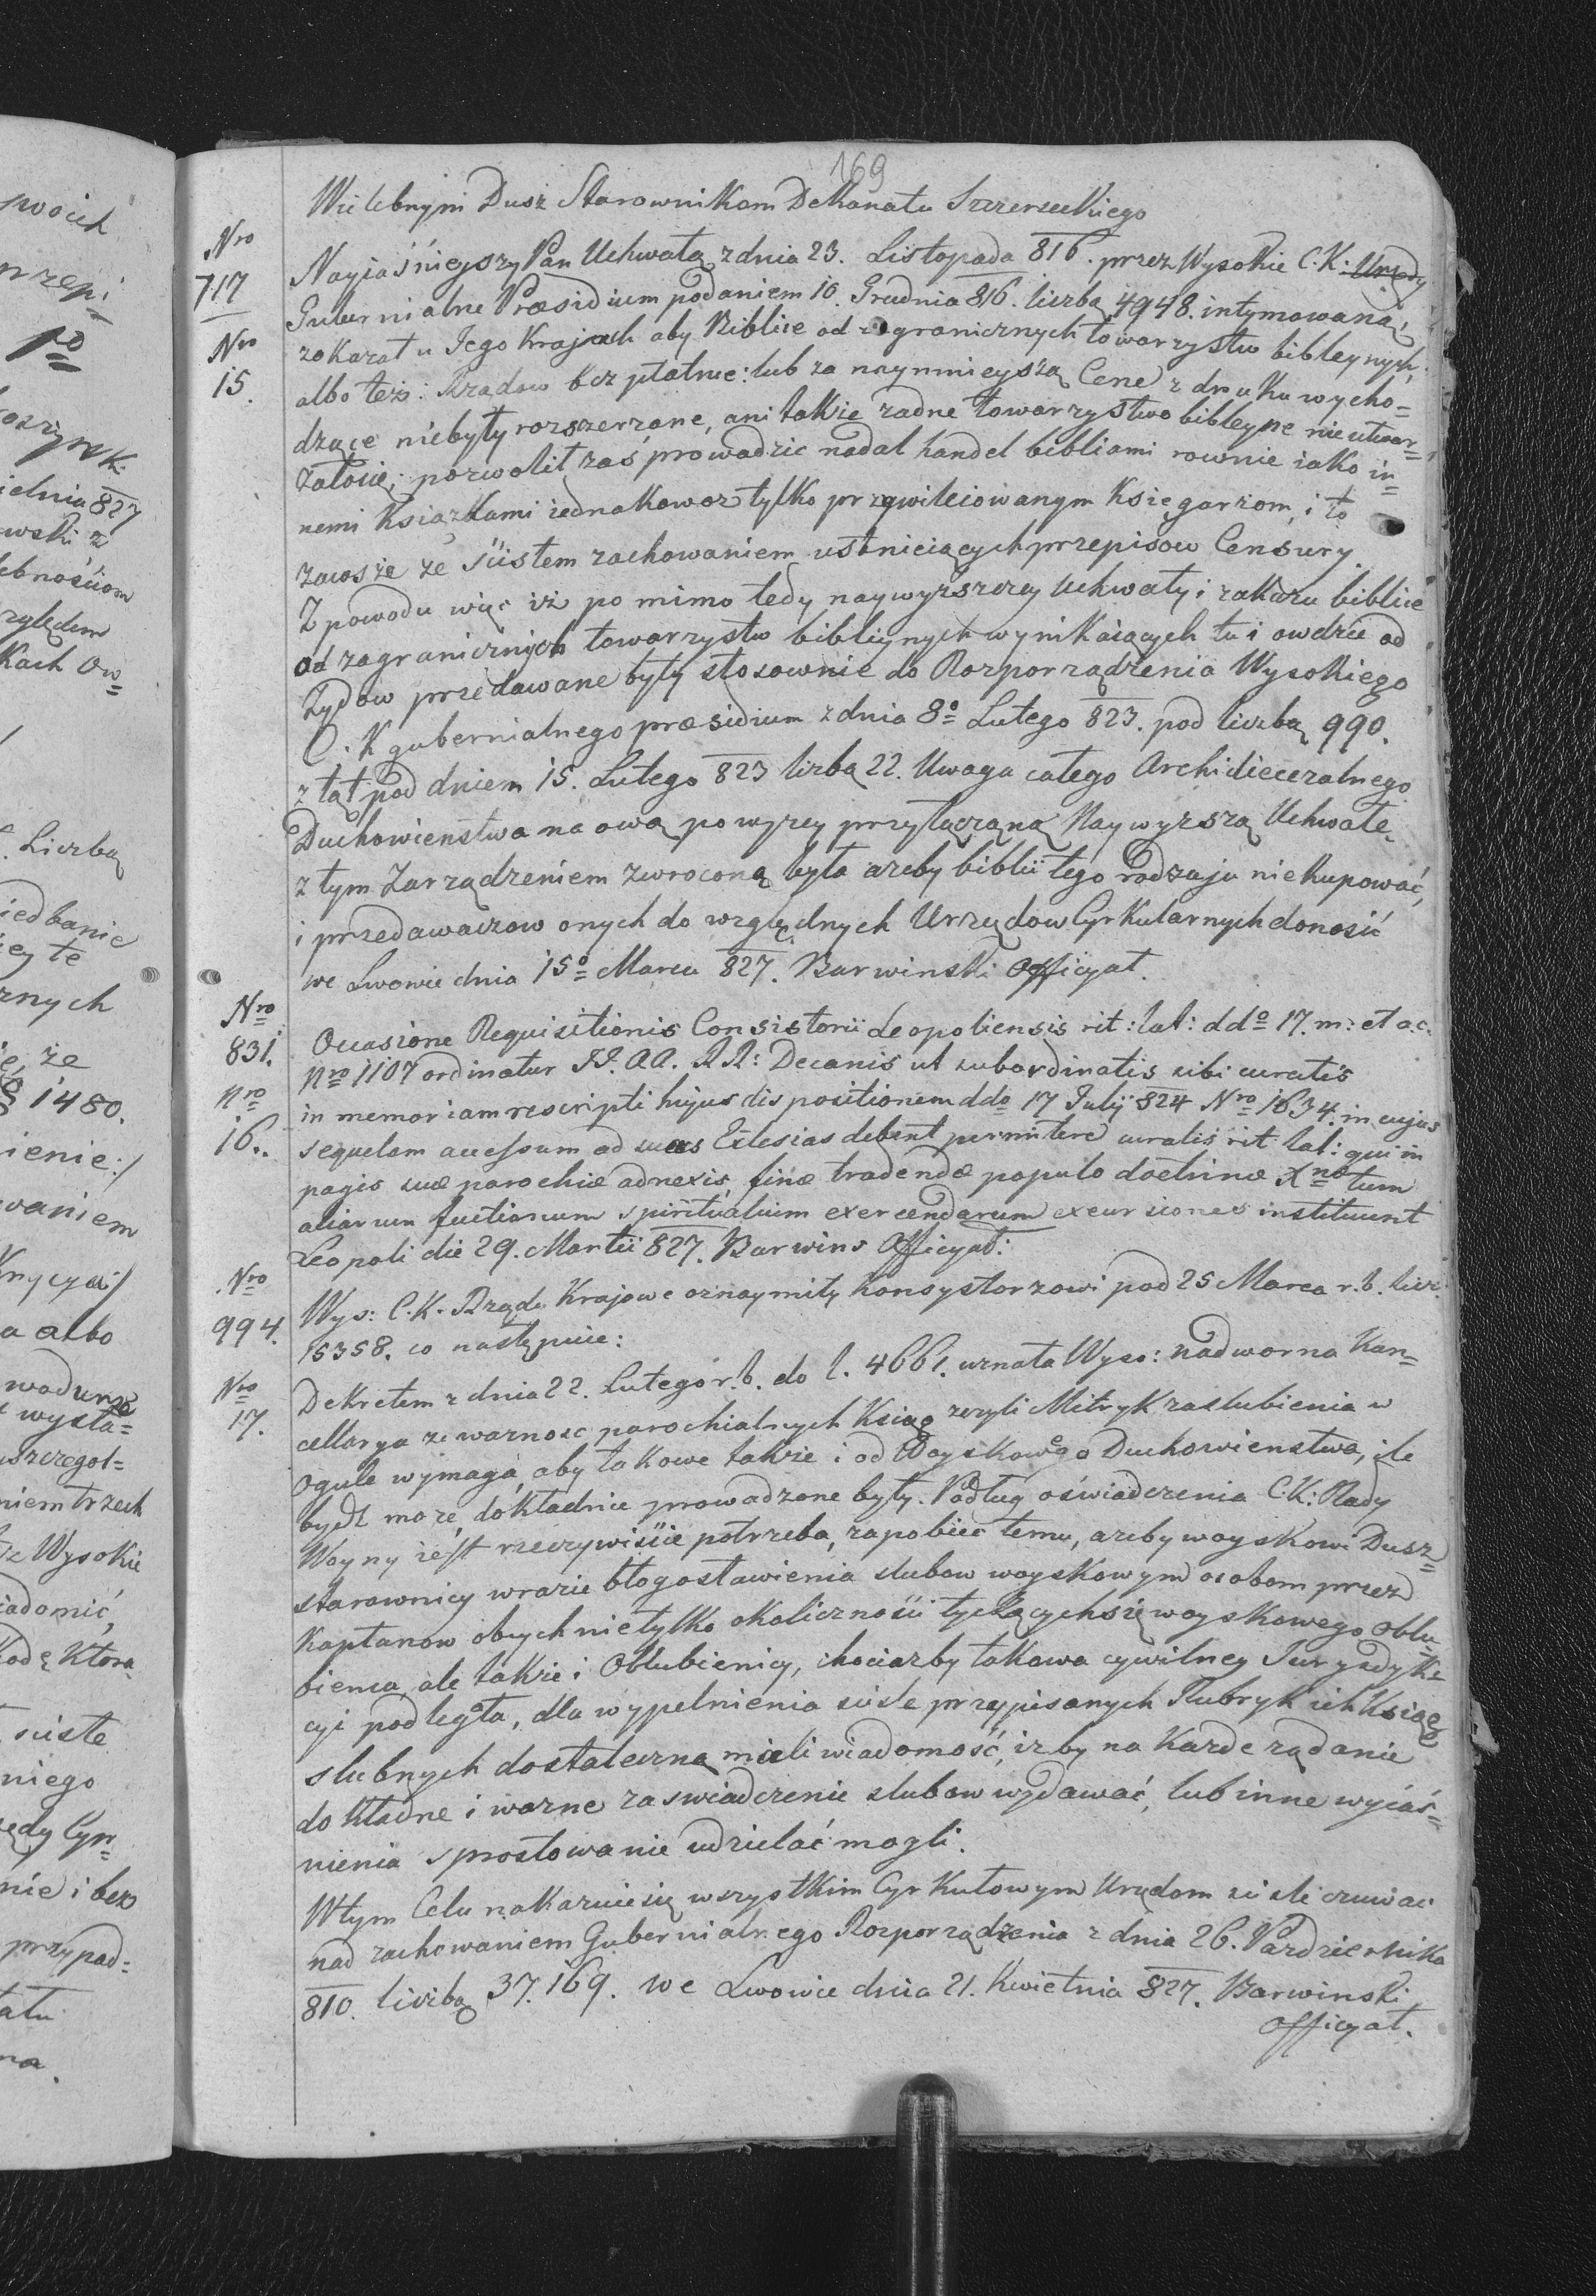 169
Wielebnym Dusz Starownikom Dekanatu Szczerzeckiego
Nro
717
Nro
15.
Nayjaśnieyszy Pan Uchwałą z dnia 23. Listopada 816. przez Wysokie C. K: Urzędy
Gubernialne Præsidium podaniem 10. Grudnia 816. liczbą 4948. intymowaną,
zakazał w Jego Krajach aby Biblie od zagranicznych towarzystw bibleynych,
albo też: Rządow bezpłatnie: lub za naymnieyszą Cenę z druku wycho=
dzące niebyły rozszerzane, ani także żadne towarzystwo bibleyne nie utwor=
załosię; pozwolił zaś prowadzic nadal handel bibliami rownie iako in=
nemi Książkami iednakowoz tylko przywileiowanym Księgarzom, i to
zawsze ze scisłem zachowaniem ustniciących przepisow Censury.
Z powodu więc iż po mimo tedy naywyższey Uchwały i zakazu biblie
od zagranicznych towarzystw bibliynych wynikaiących tu i owdzie od
Zydow przedawane były stosownie do Rozporządzenia Wysokiego
C. K gubernialnego præsidium z dnia 8o Lutego 823. pod liczbą 990.
z tąt pod dniem 15. Lutego 823 lizbą 22. Uwaga całego Archidiecezalnego
Duchowieństwa na ową powyzey przyłączaną Naywyzszą Uchwałę
z tym Zarządzeniem zwroconą była azeby biblii tego rodzaju niekupować,
i przedawaczow onych do względnych Urzędow Cyrkularnych donosić
we Lwowie dnia 15o Marca 827. Barwinski Officyał.
Nro
831.
Nro
16..
Occasione Requisitionis Consistorii Leopoliensis rit: lat: ddo 17. m: et a.c.
Nro 1107 ordinatur AA. RR: Decanis ut subordinatis sibi curatis
in memoriam rescripti hujus dispositionem ddo 17 Julij 824 Nro 1634. in cujus
sequelam accessum ad suas Eclesias debent permittere curatis rit lat: qui in
pagis suæ parochiæ adnexis, fine tradendæ populo doctrinæ Xnæ tum
aliarum functionum spiritualium exercendarum excursiones instituunt
Leopoli die 29. Martii 827. Barwins Officyał:
Nro
994.
Nro
17.
Wys: C. K. Rządy Krajowe oznaymiły konsystorzowi pod 25 Marca r. b. licz.
15358. co następuie:
Dekretem z dnia 22. Lutego r. b. do l. 4661. uznała Wyso: nadworna Kan=
cellarya ze warnosc parochialnych Ksiąg zezyli Mitryk zaslubienia w
ogule wymaga, aby takowe także i od Woyskowego Duchowienstwa, ile
bydz moze, dokładnie prowadzone były. Podług oświadczenia C. K: Rady
Woyny iest rzeczywiście potrzeba, zapobiec temu, azeby woyskowi Dusz=
starownicy wrazie błogosławienia slubow woyskowym osobom przez
Kapłanow obych nie tylko okoliczności tyczących się woyskowego Oblu=
bienca, ale także i Oblubienicy, chociażby takowa cywilney Juryzdyk=
cyi podległa, dla wypelnienia scisle przypisanych Rubryk ich Ksiąg
slubnych dostateczną mieli wiadomość, izby na każde rządanie
dokładne i warne zaswiadczenie slubow wydawać, lub inne wyiaś=
nienia sprostowanie udzielać mogli.
Wtym Celu nakazuiesię wszystkim Cyrkułowym Urzędom scisle czuwac
nad zachowaniem Gubernialnego Rozporządzenia z dnia 26. Pazdziernika
810. liczbą 37.169. we Lwowie dnia 21. Kwietnia 827. Barwinski
Officyał.